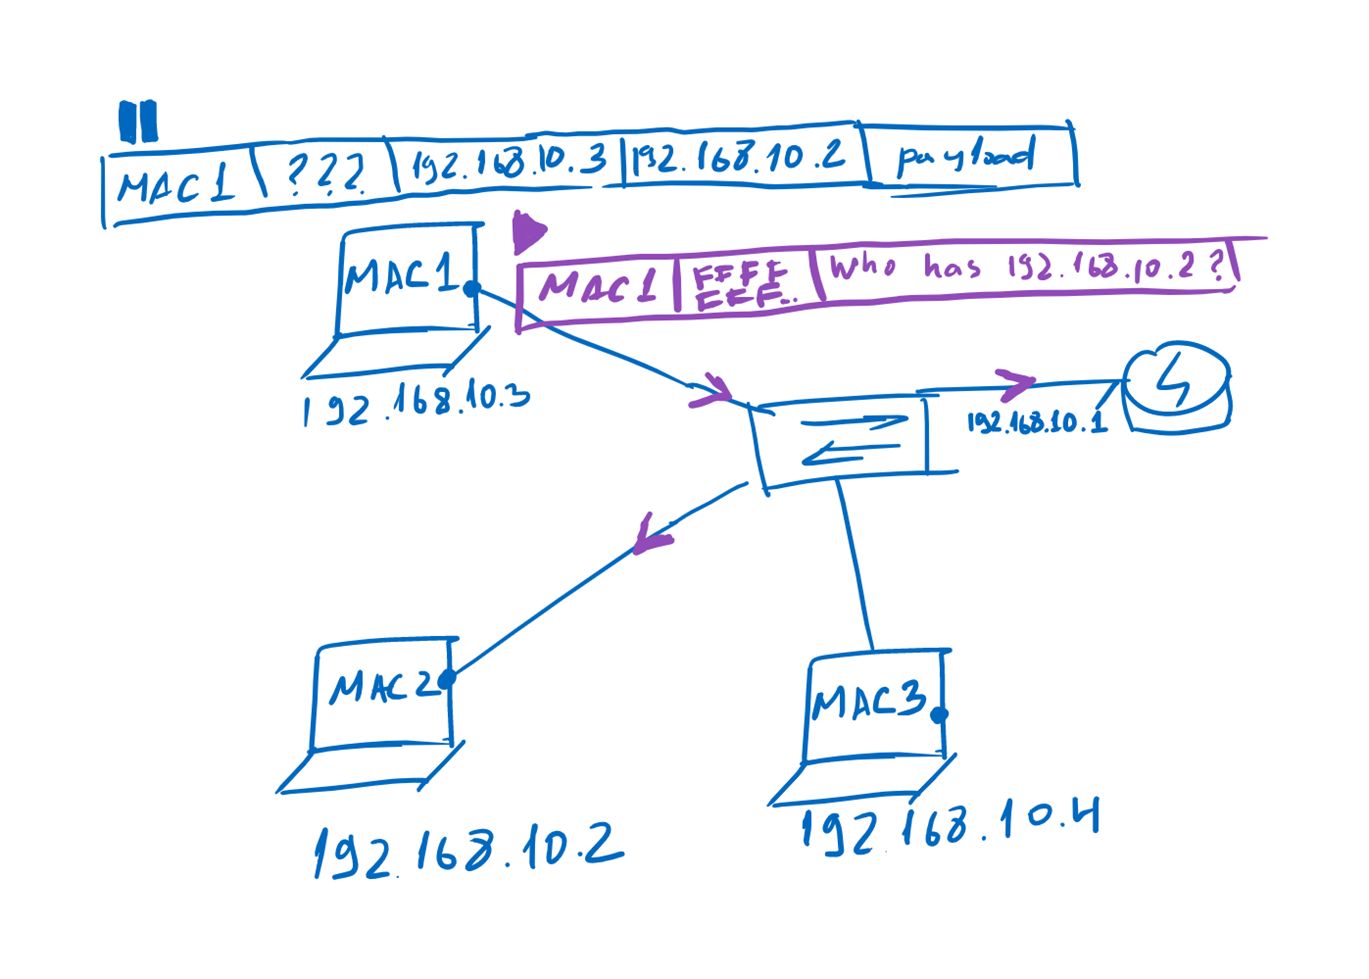 MAC1 ??? 192.168.10.3 192.168.10.2 payload
MAC1 FFFF Who has 192.168.10.2?
FFF..
MAC1
192.168.10.3
192.168.10.1
MAC2
192.168.10.2
MAC3
192.168.10.4